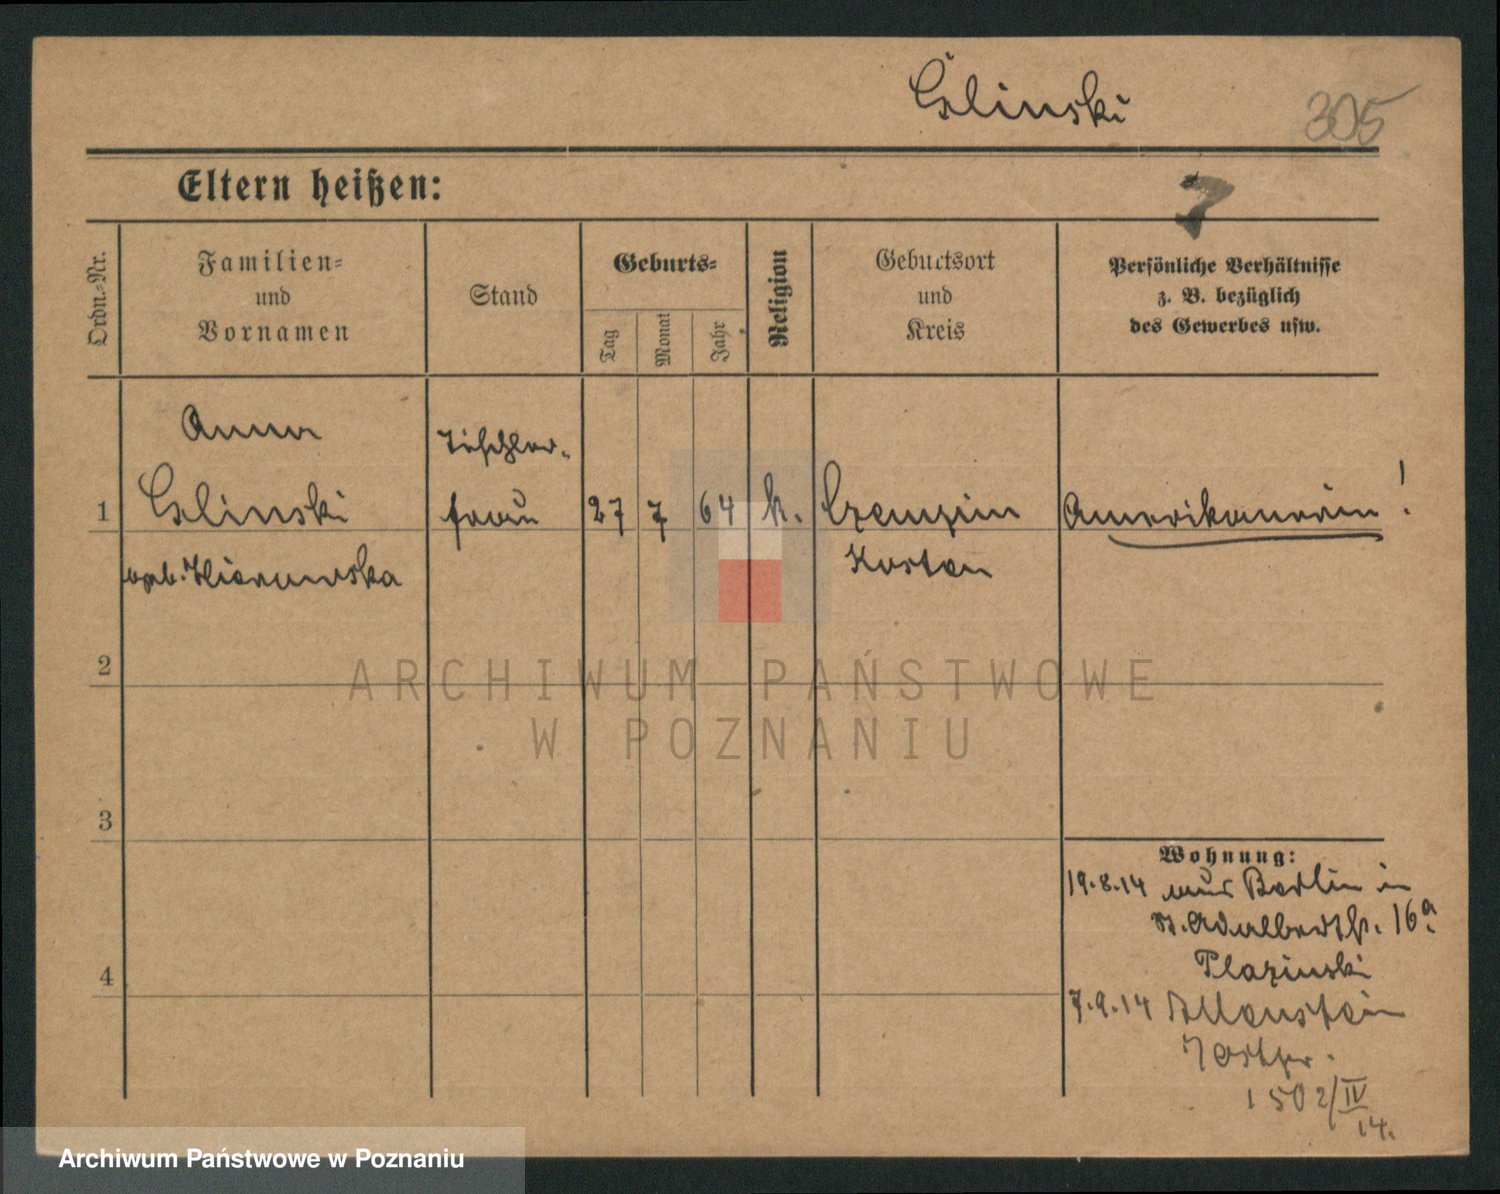 Cslinski
305
Eltern heißen:
7
Ordn.-Nr.
Familien-
und
Vornamen
Stand
Geburts-
Tag
Monat
Jahr
Religion
Geburtsort
und
Kreis
Persönliche Verhältnisse
z. B. bezüglich
des Gewerbes usw.
Anna
Tischler-
1 Cslinski frau 27 7 64 k. Czempin Amerikanerin!
geb. Kosten
2
3
4
Wohnung:
19.8.14 aus Berlin in
St. Adalbertstr. 16a
Plazinski
7.9.14 Allenstein
Ostpr.
1502/IV
14.
ARCHIWUM PAŃSTWOWE
W POZNANIU
Archiwum Państwowe w Poznaniu